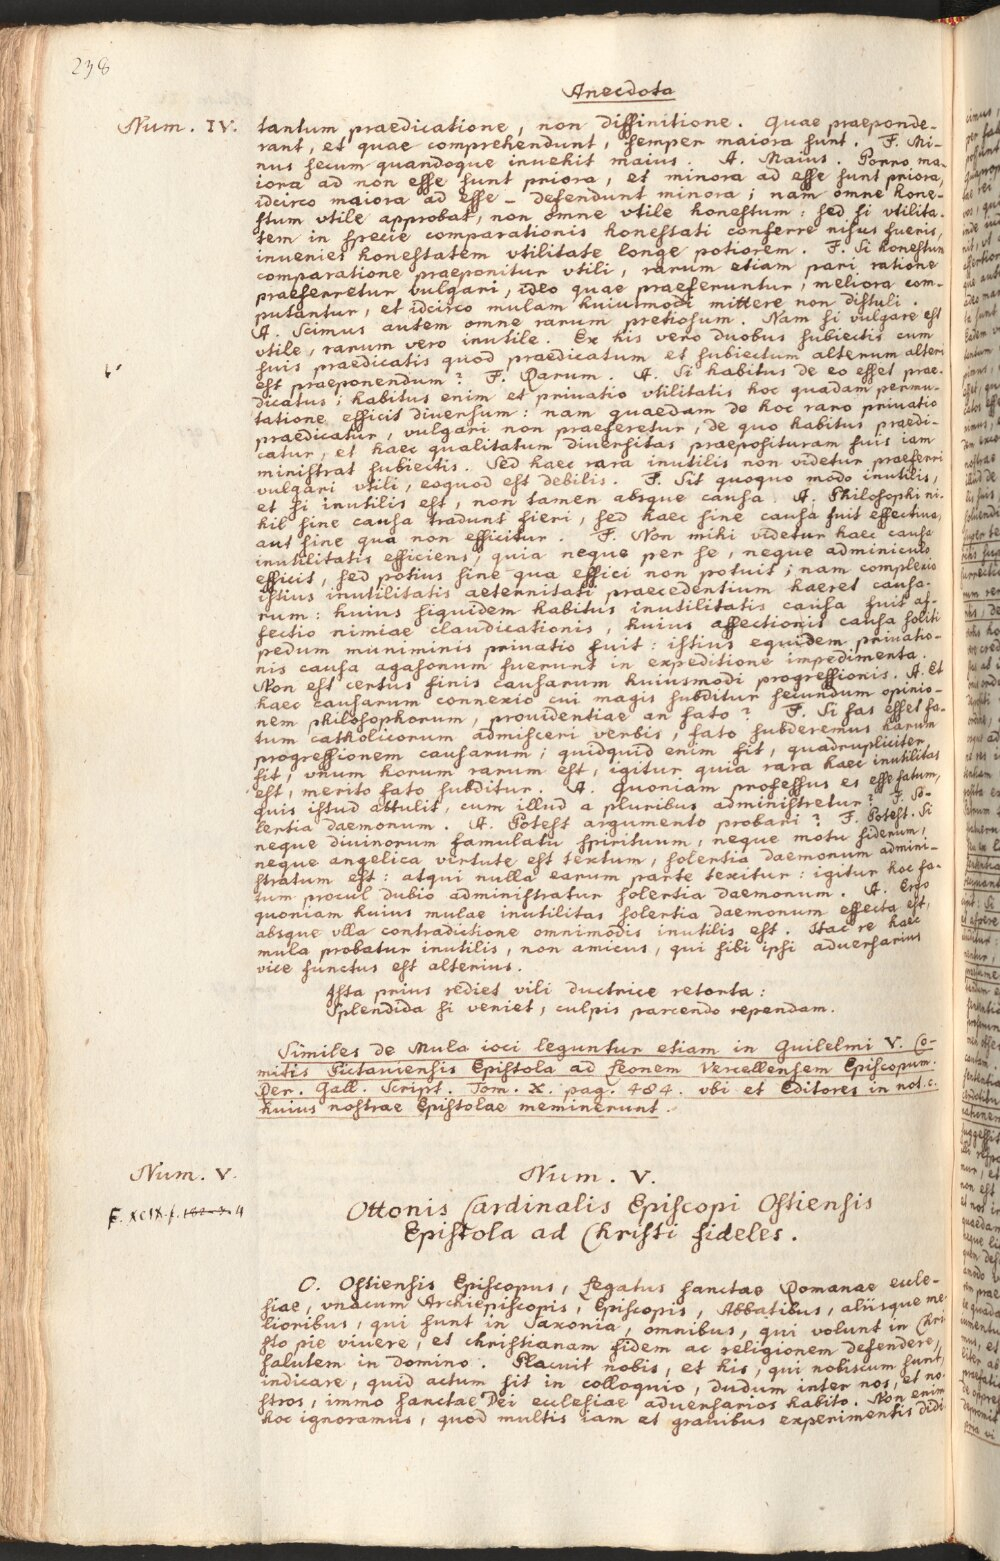 238
Anecdota
Num. IV.
tantum praedicatione, non diffinitione. Quae praeponde-
rant, et quae comprehendunt, semper maiora sunt. F. Mi-
nus secum quandoque inuehit maius. A. Maius. Porro ma-
iora ad non esse sunt priora, et minora ad esse sunt priora,
idcirco maiora ad esse - defendunt minora; nam omne hone-
stum vtile approbat, non omne vtile honestum: sed si vtilita-
tem in specie comparationis honestati conferre nisus fueris,
inuenies honestatem vtilitate longe potiorem. F. Si honestum
comparatione praeponitur vtili, rarum etiam pari ratione
praeferretur vulgari, ideo quae praeferuntur, meliora com-
putantur, et idcirco mulam huiusmodi mittere non distuli.
A. Scimus autem omne rarum pretiosum. Nam si vulgare est
vtile, rarum vero inutile. Ex his vero duobus subiectis cum
suis praedicatis quod praedicatum et subiectum alterum alteri
est praeponendum? F. Rarum. A. Si habitus de eo esset prae-
dicatus; habitus enim et priuatio vtilitatis hoc quadam permu-
tatione efficit diuersum: nam quaedam de hoc raro priuatio
praedicatur, vulgari non praeferetur, de quo habitus praedi-
catur, et haec qualitatum diuersitas praeposituram suis iam
ministrat subiectis. Sed haec rara inutilis non videtur praeferri
vulgari vtili, eoquod est debilis. F. Sit quoquo modo inutilis,
et si inutilis est, non tamen absque causa. A. Philosophi ni-
hil sine causa tradunt fieri, sed haec sine causa fuit effectiua,
aut sine qua non efficitur. F. Non mihi videtur haec causa
inutilitatis efficiens, quia neque per se, neque adminiculo
efficit, sed potius sine qua effici non potuit; nam complexio
istius inutilitatis aeternitati praecedentium haeret causa-
rum: huius siquidem habitus inutilitatis causa fuit af-
fectio nimiae claudicationis, huius affectionis causa soliti
pedum muniminis priuatio fuit: istius equidem priuatio-
nis causa agasonum fuerunt in expeditione impedimenta.
Non est certus finis causarum huiusmodi progressionis. A. Et
haec causarum connexio cui magis subditur secundum opinio-
nem philosophorum, prouidentiae an fato? F. Si fas esset fa-
tum catholicorum admisceri verbis, fato subderemus harum
progressionem causarum; quidquid enim fit, quadrupliciter
fit, vnum horum rarum est, igitur quia rara haec inutilitas
est, merito fato subditur. A. Quoniam professus es esse fatum,
quis istud attulit, cum illud a pluribus administretur? F. So-
lertia daemonum. A. Potest argumento probari? F. Potest. Si
neque diuinorum famulatu spirituum, neque motu siderum,
neque angelica virtute est textum, solertia daemonum admini-
stratum est: atqui nulla earum parte texitur: igitur hoc fa-
tum procul dubio administratur solertia daemonum. A. Ergo
quoniam huius mulae inutilitas solertia daemonum effecta est,
absque vlla contradictione omnimodis inutilis est. Hac re haec
mula probatur inutilis, non amicus, qui sibi ipsi aduersarius
vice functus est alterius.
Ista prius rediet vili ductrice retorta:
Splendida si veniet, culpis parcendo rependam.
Similes de Mula ioci leguntur etiam in Guilelmi V. Co-
mitis Pictauiensis Epistola ad Leonem Vercellensem Episcopum.
Rer. Gall. Script. Tom. X. pag. 484. vbi et Editores in not. c.
huius nostrae Epistolae meminerunt.
Num. V.
F. XCIX. f.
4
Num. V.
Ottonis Cardinalis Episcopi Ostiensis
Epistola ad Christi fideles.
O. Ostiensis Episcopus, Legatus sanctae Romanae eccle-
siae, vnacum Archiepiscopis, Episcopis, Abbatibus, aliisque me-
lioribus, qui sunt in Saxonia, omnibus, qui volunt in Chri-
sto pie viuere, et christianam fidem ac religionem defendere,
salutem in domino. Placuit nobis, et his, qui nobiscum sunt,
indicare, quid actum sit in colloquio, dudum inter nos, et no-
stros, immo sanctae Dei ecclesiae aduersarios habito. Non enim
hoc ignoramus, quod multis iam et grauibus experimentis didi-